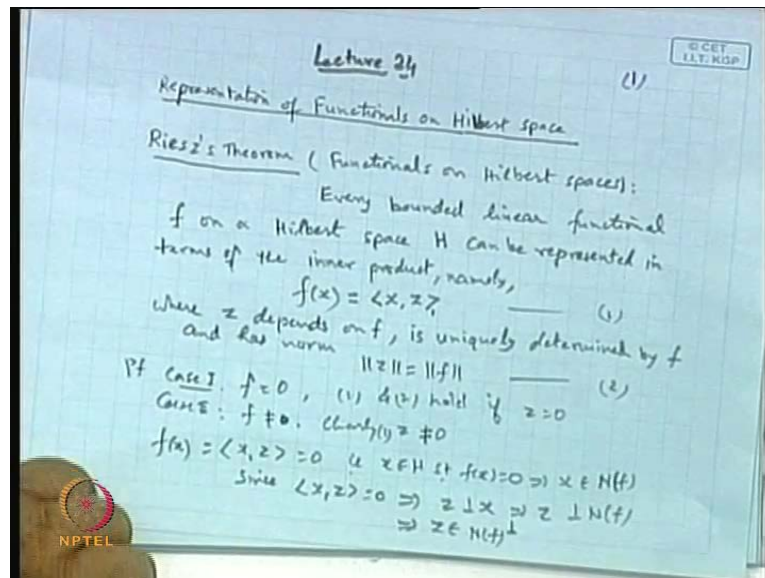 © CET
I.I.T. KGP
Lecture 24
(1)
Representation of Functionals on Hilbert space
Riesz's Theorem (Functionals on Hilbert spaces):
Every bounded linear functional
f on a Hilbert space H can be represented in
terms of the inner product, namely,
f(x) = <x, z>, —— (1)
where z depends on f, is uniquely determined by f
and has norm
||z|| = ||f|| —— (2)
Pf Case I. f=0, (1) & (2) hold if z=0
Case II: f ≠ 0. Clearly z ≠ 0
f(x) = <x, z> = 0 ie x∈H st f(x)=0 ⇒ x ∈ N(f)
Since <x, z> = 0 ⇒ z ⊥ x ⇒ z ⊥ N(f)
⇒ z ∈ N(f)⊥
NPTEL